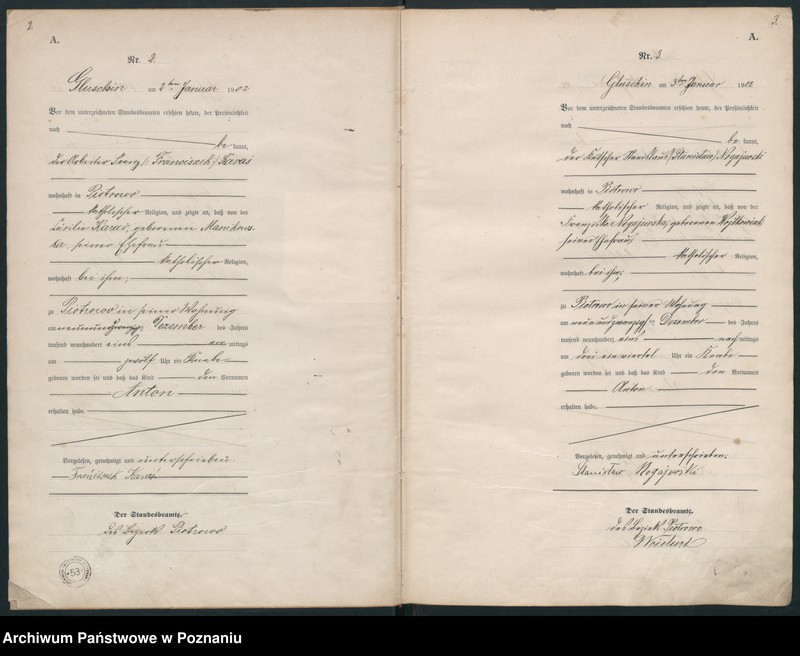 2
A.
Nr. 2.
Gluschin am 2ten Januar 1902
Vor dem unterzeichneten Standesbeamten erschien heute, der Persönlichkeit
nach
be kannt,
der Arbeiter Franz (: Franciszek :) Karas
wohnhaft in Piotrowo
katholischer Religion, und zeigte an, daß von der
Karas, geborenen
ka seiner Ehefrau
katholischer Religion,
wohnhaft bei ihm,
zu Piotrowo in seiner Wohnung
am Dezember des Jahres
tausend neunhundert eins vor mittags
um zwölf Uhr ein Knabe
geboren worden sei und daß das Kind den Vornamen
Anton
erhalten habe.
Vorgelesen, genehmigt und unterschrieben
Franciszek Karaś
Der Standesbeamte.
des Bezirk Piotrowo
53
3.
A.
Nr. 3.
Gluschin am 3ten Januar 1902
Vor dem unterzeichneten Standesbeamten erschien heute, der Persönlichkeit
nach
be kannt,
der Kutscher Stanislaus (Stanisław) Rogajewski
wohnhaft in Piotrowo
katholischer Religion, und zeigte an, daß von der
Franziska Rogajewska, geborenen Wojtkowiak
seiner Ehefrau
katholischer Religion,
wohnhaft bei ihm;
zu Piotrowo in seiner Wohnung
am neunundzwanzigsten Dezember des Jahres
tausend neunhundert eins nach mittags
um drei ein viertel Uhr ein Knabe
geboren worden sei und daß das Kind den Vornamen
Anton
erhalten habe.
Vorgelesen, genehmigt und unterschrieben.
Stanisław Rogajewski
Der Standesbeamte.
des Bezirk Piotrowo
Archiwum Państwowe w Poznaniu